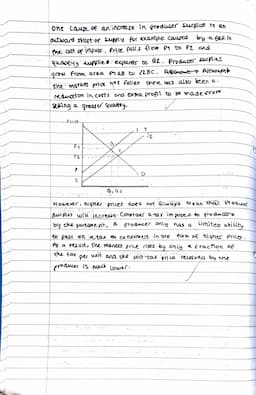 One cause of an increase in producer surplus is an
outward shift of supply for example caused by a fall in
the cost of inputs. Price falls from P1 to P2 and
quantity supplied expands to Q2. Producer surplus
grow from area P1AB to P2BC. Although
the market price has fallen there has also been a
reduction in costs and extra profit to be made from
selling a greater quantity.
Price
S
P1
P2
B
C
D
Q1 Q2
However, higher prices does not always mean that producer
surplus will increase. Consider a tax imposed to producers
by the government. A producer only has a limited ability
to pass on a tax to consumers in the form of higher prices.
As a result, the market price rises by only a fraction of
the tax per unit and the post-tax price received by the
producer is much lower.